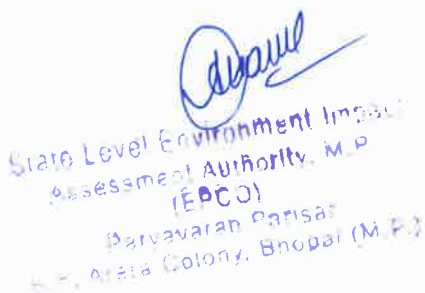 State Level Environment Impact
Assessment Authority, M.P
(EPCO)
Paryavaran Parisar
Arera Colony, Bhopal (M.P.)